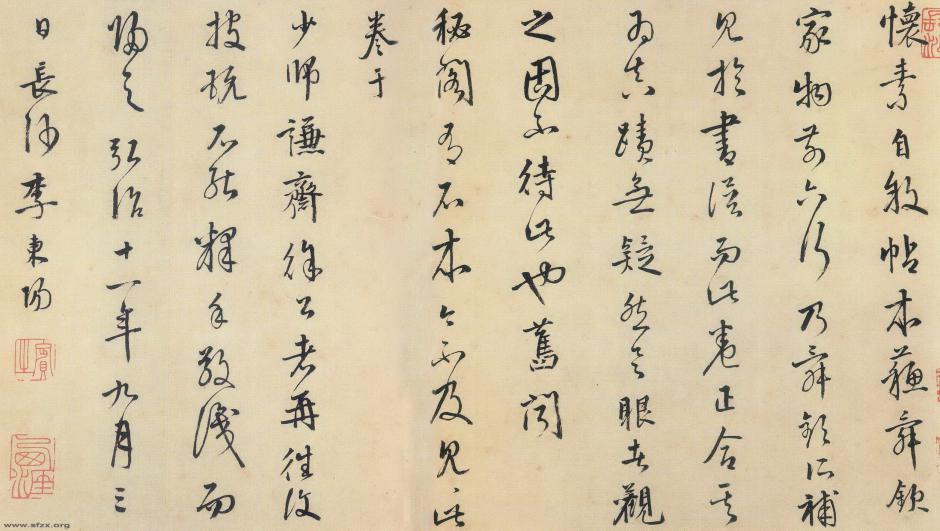 懷素自敘帖本蘇舜欽
家物前六行乃舜欽所補
見於書譜而此卷正合其
為真蹟無疑然具眼者觀
之固不待此也舊聞
秘閣有石本今不及見此
卷于
少師謙齋徐公者再往復
披玩不能釋手敬識而
歸之弘治十一年九月三
日長沙李東陽
www.sfzx.org